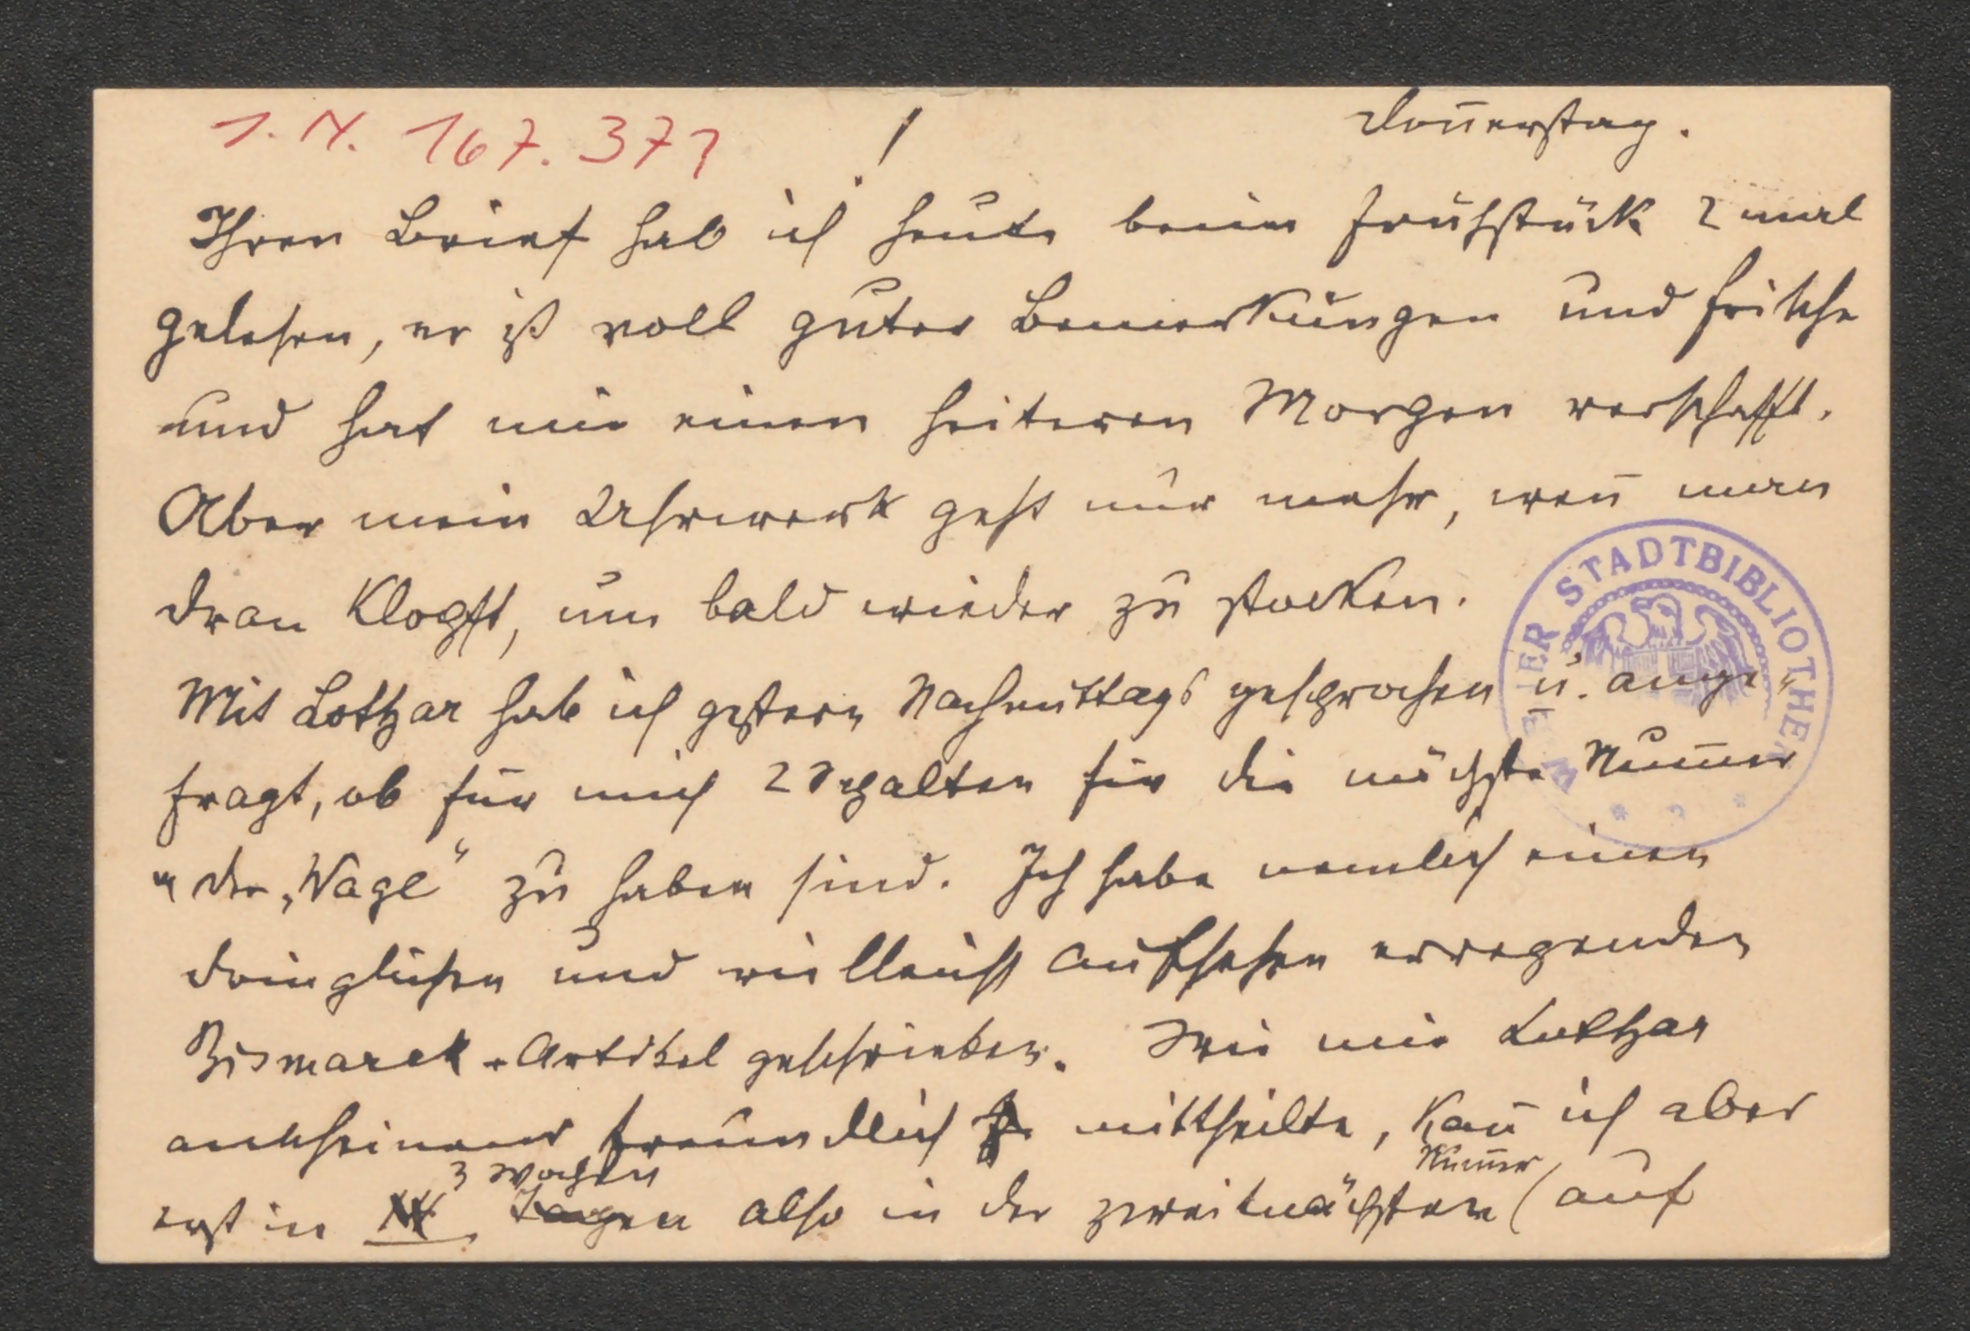 I. N. 167.371
/
Don̄erstag.
Ihren Brief hab ich heute beim Frühstück 2 mal
gelesen, er ist voll guter Bemerkungen und Frische
und hat mir einen heiteren Morgen verschafft.
Aber mein Uhrwerk geht nur mehr, wen̄ man
dran klopft, um bald wieder zu stocken.
Mit Lothar hab ich gestern Nachmittags gesprochen u. ange-
fragt, ob für mich 2 Spalten für die nächste Num̄er
"der „Wage“ zu haben sind. Ich habe nemlich einen
dringlichen und vielleicht Aufsehen erregenden
Bismarck-Artikel geschrieben. Wie mir Lothar
anscheinend freundlich mittheilte, kan̄ ich aber
3 Wochen Num̄er
erst in 14 Tagen also in der zweitnächsten (auf
WIENER STADTBIBLIOTHEK